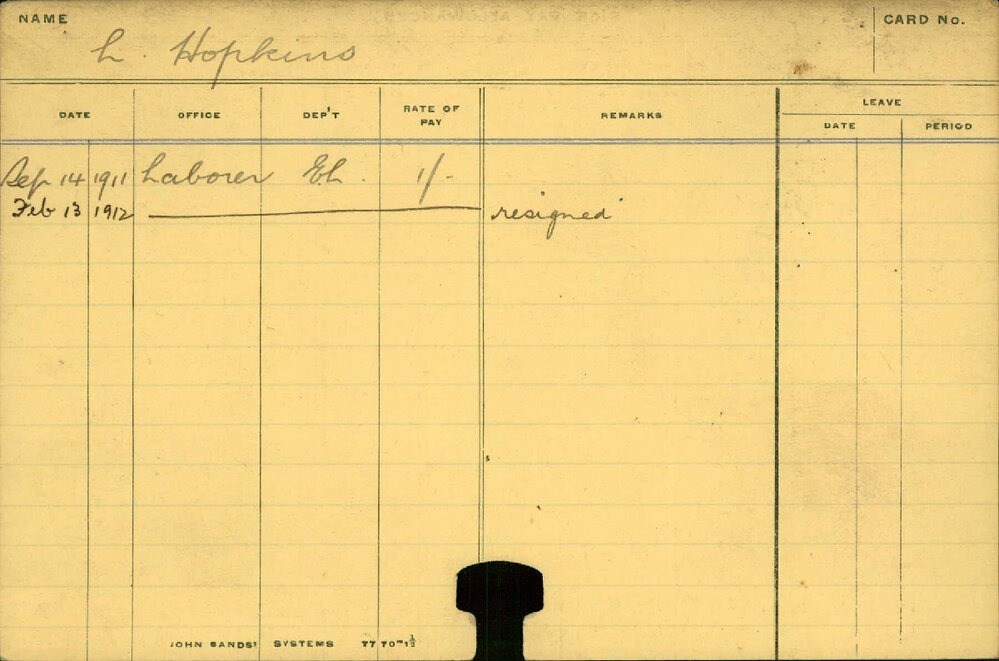 NAME L. Hopkins CARD No.
DATE OFFICE DEP'T RATE OF PAY REMARKS LEAVE
DATE PERIOD
Sep 14 1911 Laborer EL. 1/-
Feb 13 1912 resigned
JOHN SANDS' SYSTEMS